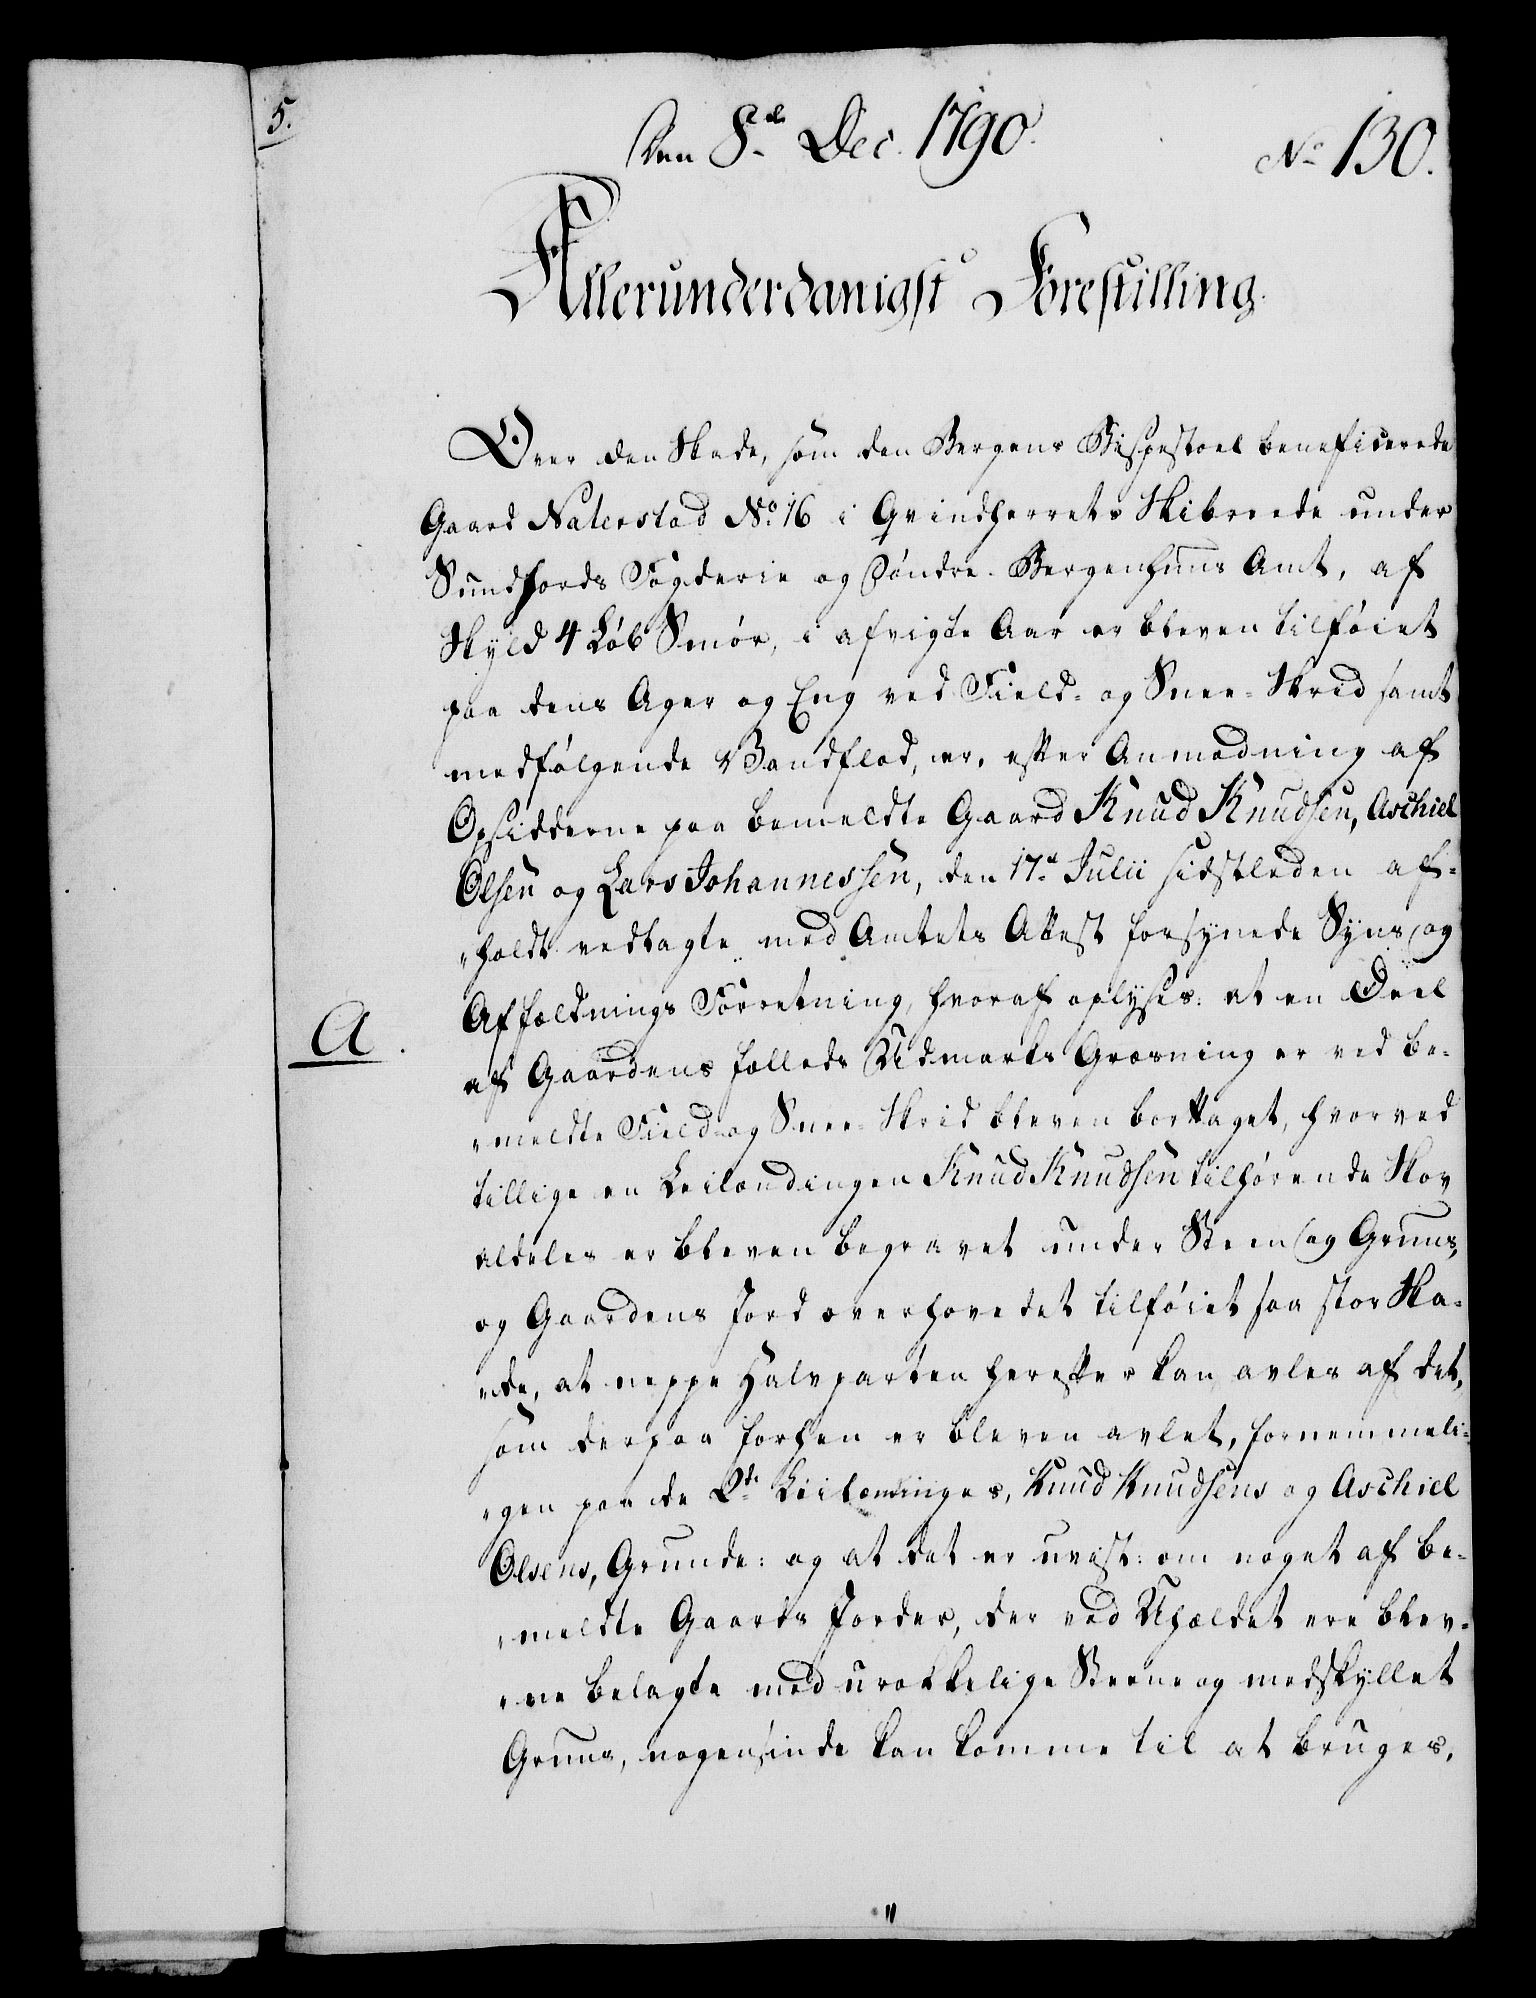 5.
Den 8de Dec. 1790.
No 130.
Allerunderdanigst Forestilling.
Over den Skade, som den Bergens Bispestoel beneficerede
Gaard Naterstad No. 16 i Qvindherrets Skibreede under
Sundhords Fogderie og Söndre-Bergenhuus Amt, af
Skyld 4 Löb Smör, i afvigte Aar er bleven tilföiet
paa dens Ager og Eng ved Field- og Snee-Skred samt
medfölgende Vandflod, er, efter Anmodning af
Opsidderne paa bemeldte Gaard Knud Knudsen, Aschiel
Olsen og Lars Johannessen, den 17de Julii sidstleden af-
"holdt vedtagte med Amtets Attest forsynede Syns og
Affældnings Forretning, hvoraf oplyses: at en Deel
A.
af Gaardens fælleds Udmarks Græsning er ved be-
"meldte Field- og Snee-Skrid bleven borttaget, hvorved
tillige en Leilændingen Knud Knudsen tilhörende Skov
aldeles er bleven begravet under Steen og Gruus,
og Gaardens Jord overhovedet tilföiet saa stor Ska-
"de, at neppe Halvparten herefter kan avles af det,
som derpaa forhen er bleven avlet, fornemmeli-
"gen paa de 2de Leilændinges, Knud Knudsens og Aschiel
Olsens, Grunde: og at det er uvist: om noget af be-
"meldte Gaards Jorder, der ved Uhældet ere blev-
"ne belagte med urokkelige Steene og medskyllet
Gruus, nogensinde kan komme til at bruges,
"